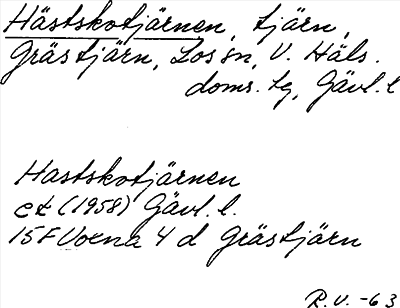 Hästskotjärnen, tjärn,
Grästjärn, Los sn, V. Häls.
doms. tg, Gävl. l
Hastskotjärnen
ek (1958) Gävl. l.
15F Voxna 4 d Grästjärn
R.V. -63